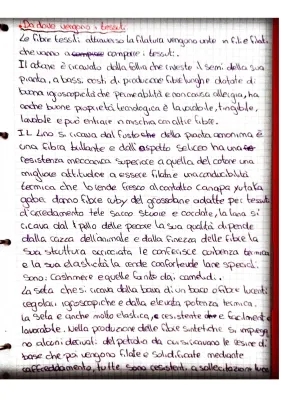 Da dove vengono i tessuti
Le fibre tessili attraverso la filatura vengono unite in fili e filati
che vanno a comporre i tessuti.
Il cotone è ricavato dalla peluria che investe i semi della sua
pianta, a bassi costi di produzione fibre lunghe dotate di
buona igroscopicità che permeabilità e non causa allergia, ha
anche buone proprietà tecnologica è lavabile, tingibile,
lavabile e può entrare in mischia con altre fibre.
IL Lino si ricava dal fusto della pianta omonima è
una fibra brillante e dall'aspetto seliceo ha una
resistenza meccanica superiore a quella del cotone una
migliore attitudine a essere filata e una conducibilità
termica che lo rende fresco al contatto Canapa yuta ka
danno fibre del grossolane adatte per tessuti
d'arredamento tele sacco stuoie e cordate, la lana si
ricava dal pillo delle pecore la sua qualità dipende
dalla razza dell'animale e dalla finezza delle fibre la
sua struttura arricciata le conferisce coibenza termica
e la sua elasticità la rende confortevole lane speciali
Sono: cashmere e quelle fornite dai camelidi.
La seta che si ricava dalla bava di un baco o fibre lucenti
regolari igroscopiche e dalla elevata potenza termica.
la seta è anche molto elastica, e resistente e facilmente
lavorabile. Nella produzione delle fibre sintetiche si impiega
no alcuni derivati del petrolio da cui si ricavano le resine di
base che poi vengono filate e solidificate mediante
raffreddamento, tutte sono resistenti a sollecitazione